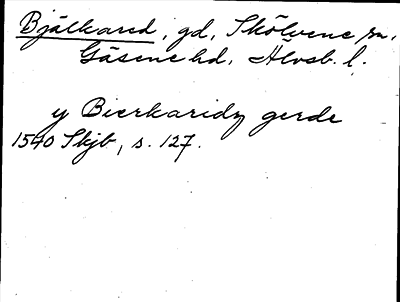 Bjälkared, gd, Skölvene sn,
Gäsene hd, Älvsb. l.
y Bierkaridz gerde
1540 Skjb, s. 127.